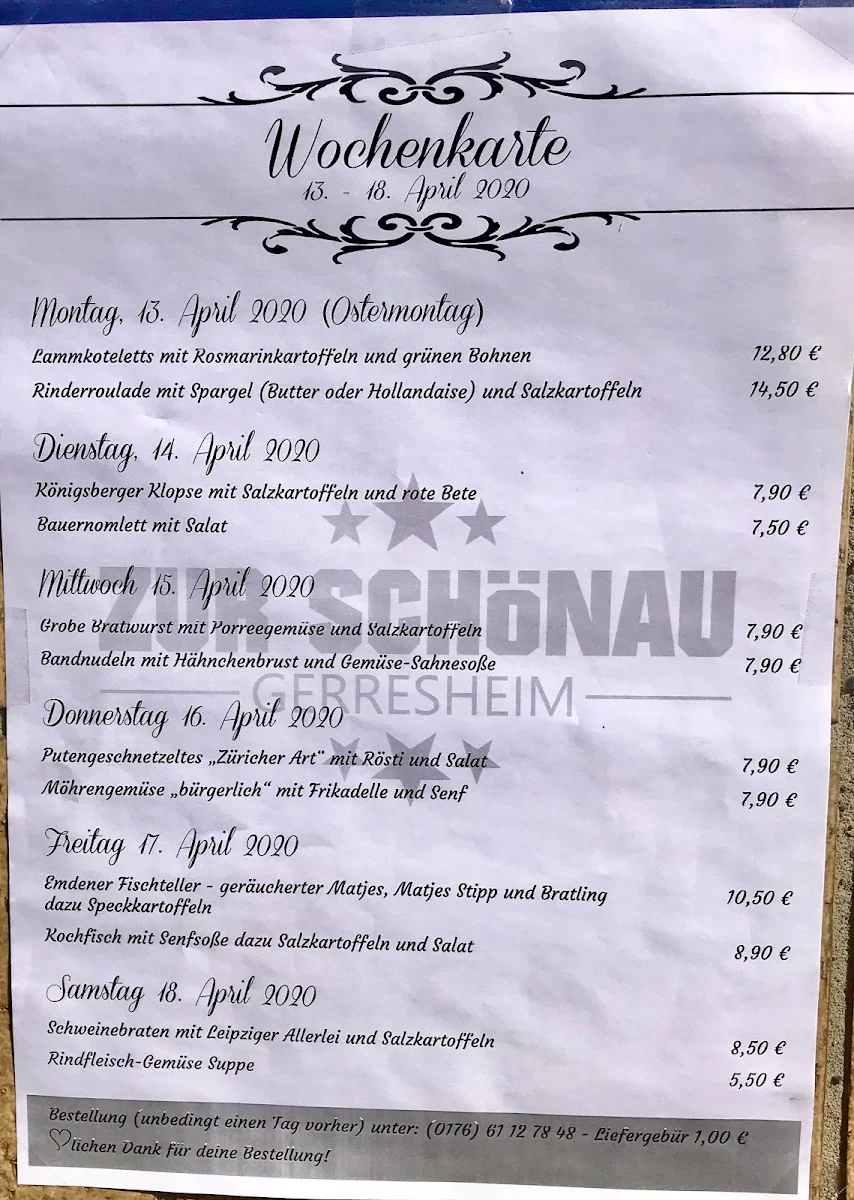 Wochenkarte
13. - 18. April 2020
Montag, 13. April 2020 (Ostermontag)
Lammkoteletts mit Rosmarinkartoffeln und grünen Bohnen 12,80 €
Rinderroulade mit Spargel (Butter oder Hollandaise) und Salzkartoffeln 14,50 €
Dienstag, 14. April 2020
Königsberger Klopse mit Salzkartoffeln und rote Bete 7,90 €
Bauernomlett mit Salat 7,50 €
ZUR SCHÖNAU
GERRESHEIM
Mittwoch 15. April 2020
Grobe Bratwurst mit Porreegemüse und Salzkartoffeln 7,90 €
Bandnudeln mit Hähnchenbrust und Gemüse-Sahnesoße 7,90 €
Donnerstag 16. April 2020
Putengeschnetzeltes „Züricher Art“ mit Rösti und Salat 7,90 €
Möhrengemüse „bürgerlich“ mit Frikadelle und Senf 7,90 €
Freitag 17. April 2020
Emdener Fischteller - geräucherter Matjes, Matjes Stipp und Bratling 10,50 €
dazu Speckkartoffeln
Kochfisch mit Senfsoße dazu Salzkartoffeln und Salat 8,90 €
Samstag 18. April 2020
Schweinebraten mit Leipziger Allerlei und Salzkartoffeln 8,50 €
Rindfleisch-Gemüse Suppe 5,50 €
Bestellung (unbedingt einen Tag vorher) unter: (0176) 61 12 78 48 - Liefergebür 1,00 €
♡lichen Dank für deine Bestellung!